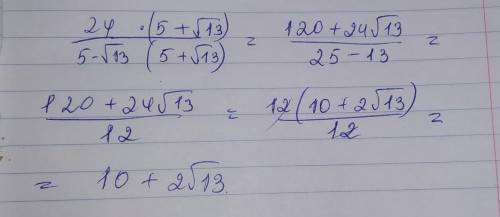 24 · (5 + √13) / 5 - √13 (5 + √13) = 120 + 24√13 / 25 - 13 =
120 + 24√13 / 12 = 12(10 + 2√13) / 12 =
= 10 + 2√13.